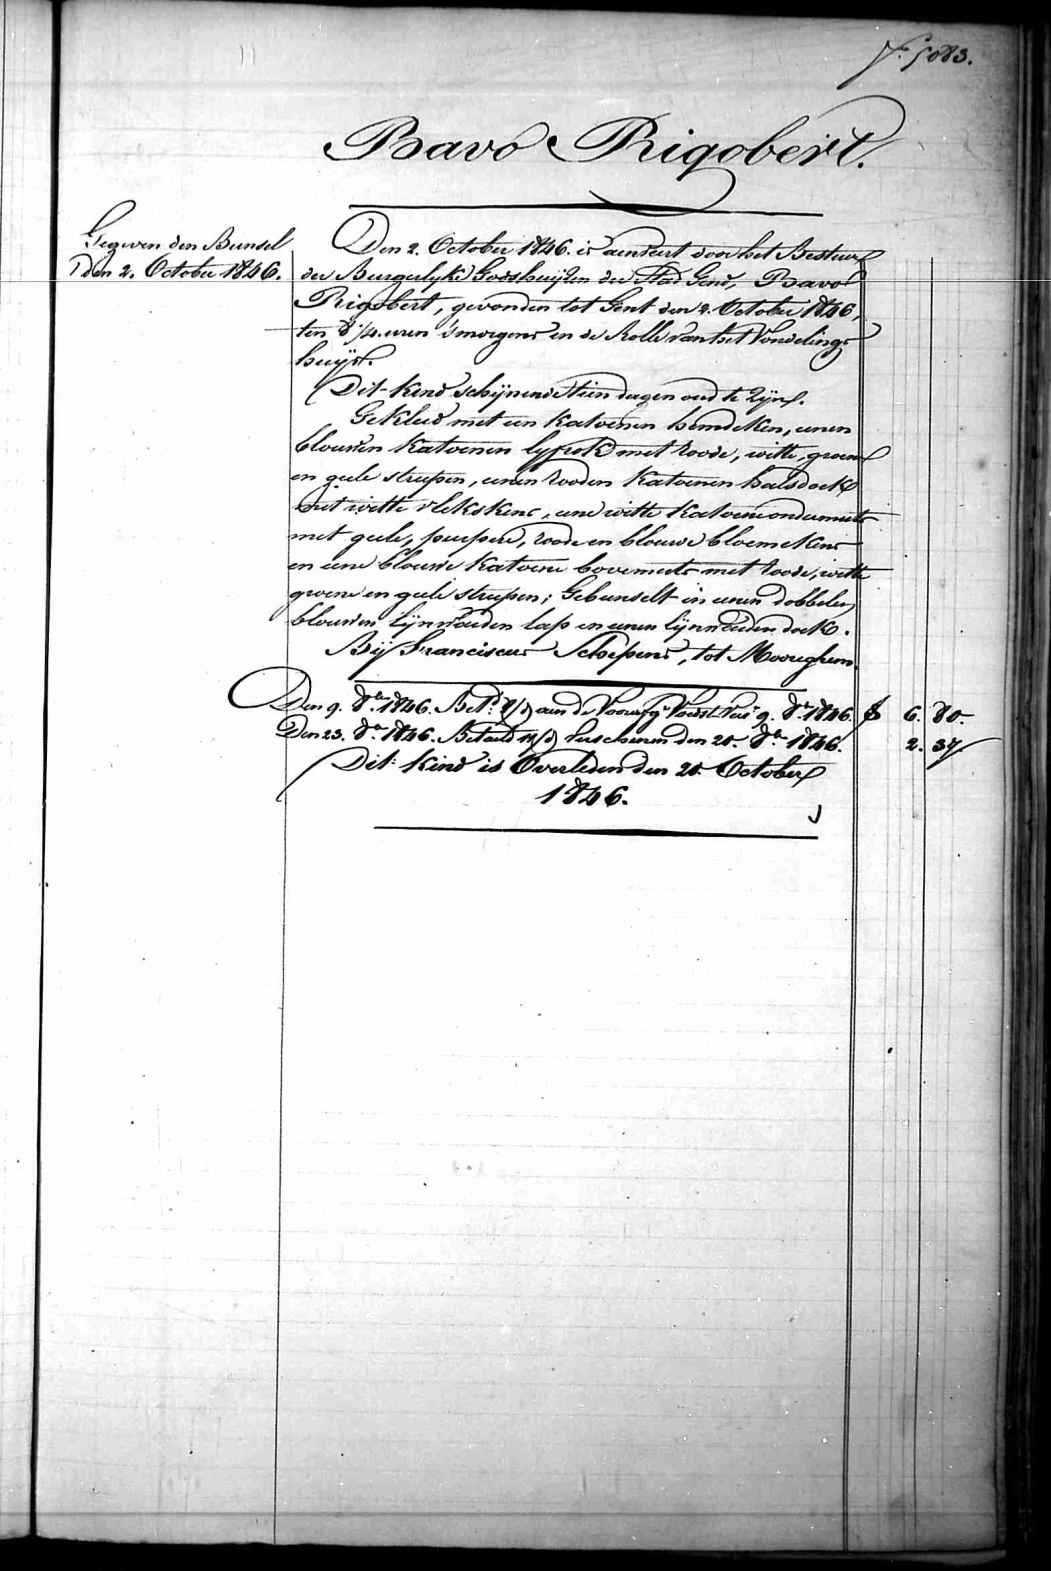 Fº. 5083.
Bavo Rigobert.
Gegeven den Bunsel
Den 2. October 1846.
Den 2. October 1846. is aenveert door het Bestuer
der Burgerlyke Godshuijzen der Stad Gend, Bavo
Rigobert, gevonden tot Gent den 2. October 1846,
ten 8 1/4 uren 'smorgens en de Rolle van het Vondelings
huijs.
Dit kind schijnende tien dagen oud te zijn.
Gekleed met een katoenen hemdeken, eenen
blouwen katoenen lyfrok met roode, witte, groene
en geele streepen, eenen rooden katoenen halsdoek
met witte vlekskens, eene witte katoene ondermuts
met geele, purpere, roode en blouwe bloemekens
en eene blouwe katoene bovenmuts met roode, witte
groene en geele streepen; Gebunselt in eenen dobbelen
blouwen lijnwaeden lap en eenen lijnwaeden doek.
Bij Franciscus Schepens, tot Mooreghem
Den 9. 8br. 1846. Bet: aen de 9. 8br. 1846. 6. 80.
Den 23. 8br. 1846. Betaeld verschenen den 20. 8br 1846. 2. 37
Dit kind is Overleden den 20. October
1846.